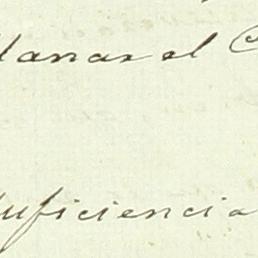 llanar el
suficiencia